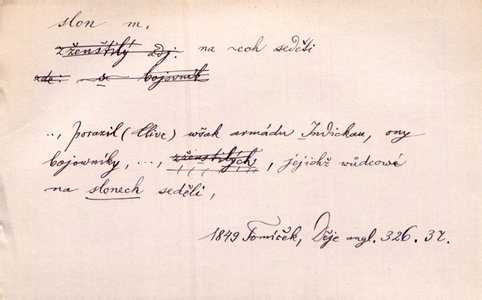 slon m.
zženštilý adj. na -ech seděti
zde: se bojovník
.., porazil (Clive) wšak armádu Indickau, ony
bojowníky, ..., zženštilých, jejichž wůdcowé
na slonech seděli,
1849 Tomíček, Děje angl. 326. 37.